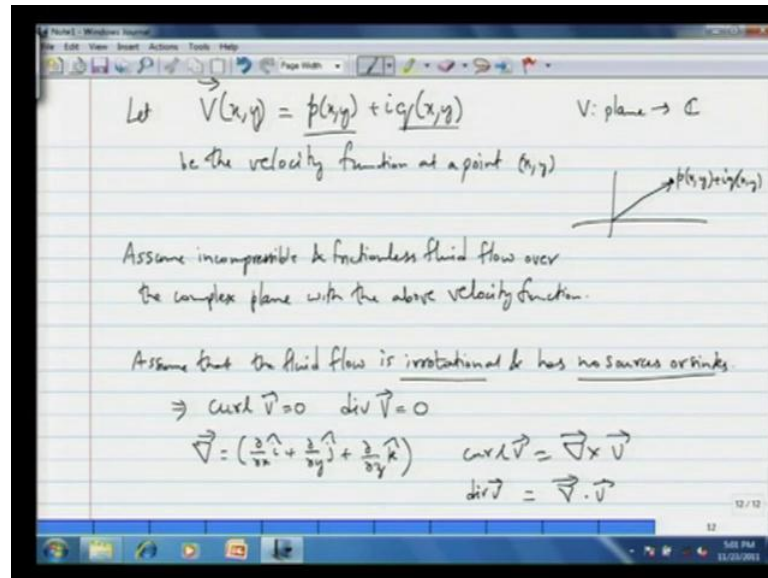 Note1 - Windows Journal
File Edit View Insert Actions Tools Help
Page Width
Let V⃗(x,y) = p(x,y) + iq(x,y) V: plane → ℂ
be the velocity function at a point (x,y)
p(x,y)+iq(x,y)
Assume incompressible & frictionless fluid flow over
the complex plane with the above velocity function.
Assume that the fluid flow is irrotational & has no sources or sinks.
⇒ curl V⃗=0 div V⃗=0
∇⃗ = (∂/∂x î + ∂/∂y ĵ + ∂/∂z k̂) curl V⃗ = ∇⃗ × V⃗
div V⃗ = ∇⃗ . V⃗
12 / 12
12
5:01 PM
11/23/2011